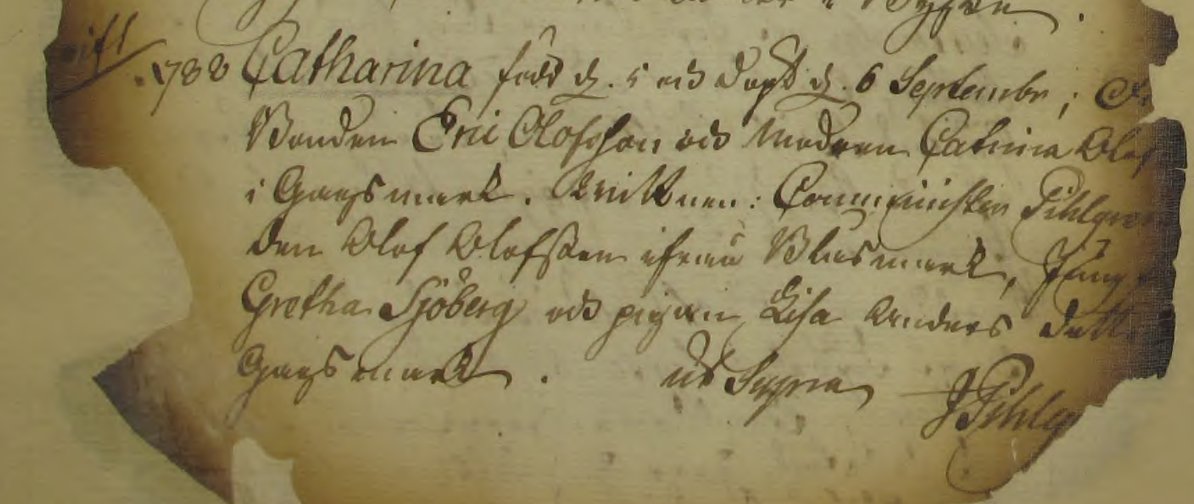 i Bygden.
gift
1788 Catharina född d. 5 och döpt d. 6 Septembr; F
Bonden Eric Olofsson och Modren Catrina Olof
i Gagsmark. Wittnen: Comminister Pihlgren
den Olof Olofsson ifrån Blåsmark, Jung
Gretha Sjöberg och pigan Lisa Anders dott
Gagsmark. ut Supra JPihlg